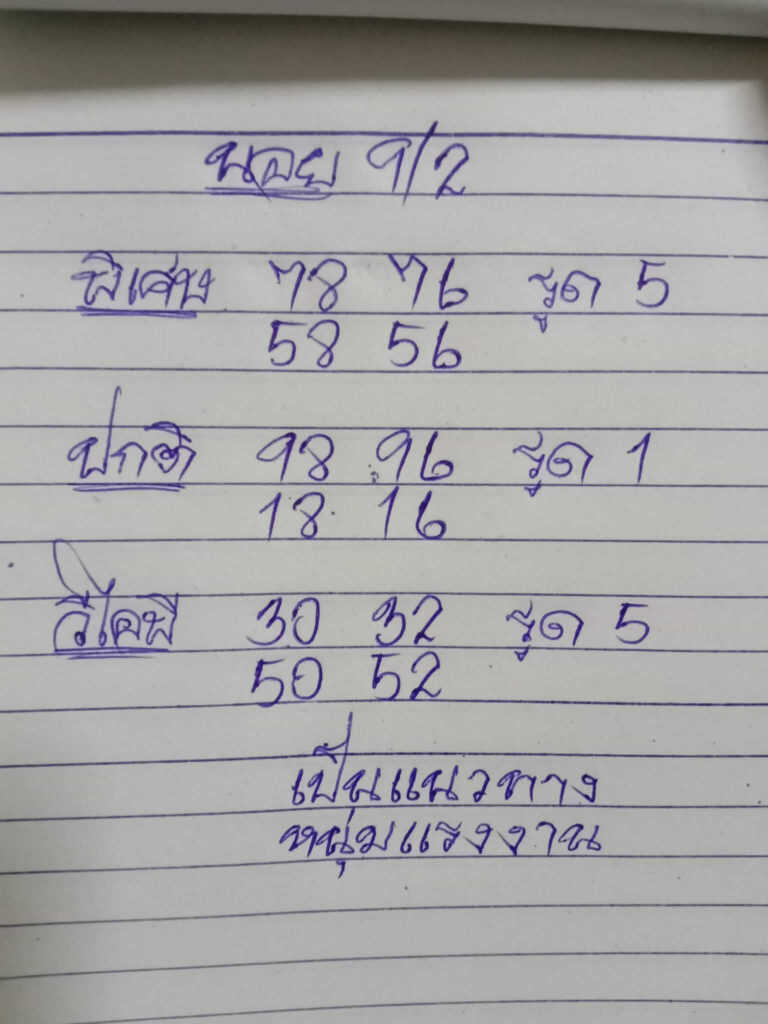 นอย 9/2
พิเศษ 78 76 รูด 5
58 56
ปกติ 98 96 รูด 1
18 16
วีไอพี 30 32 รูด 5
50 52
เป็นแนวทาง
หนุ่มแรงงาน